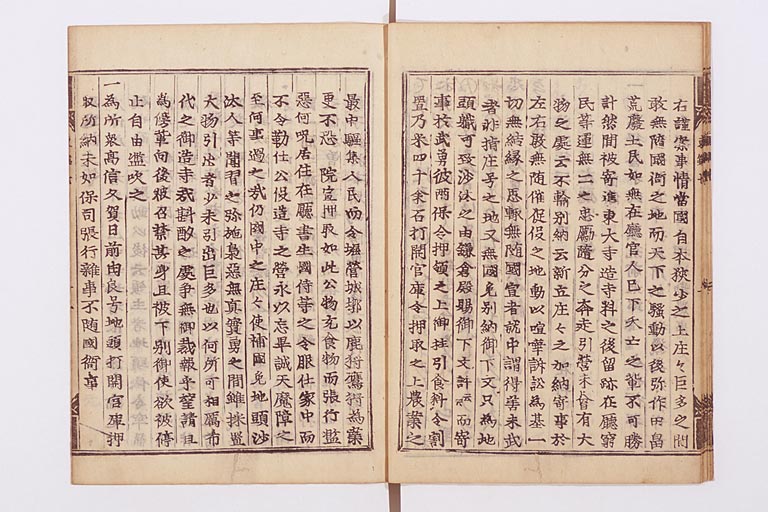 右謹案事情當國自本狹少之上庄々巨多之間
敢無隨國衙之地而天下之騷動以後弥作田畠
荒廢土民如無在廳官人已下夭亡之輩不可勝
計然間被寄進東大寺造寺料之後留跡在廳窮
民等運無二之忠勵隨分之奔走引營未曾有大
物之處云不輸別納云新立庄々之加納寄事於
左右敢無隨催促之地動以喧嘩訴訟為基一
切無結縁之思輙無隨國宣者就中謂得善末武
者非指庄号之地又無國免別納御下文只為地
頭職可致沙汰之由鎌倉殿賜御下文許云而寄
事於武勇彼兩保令押領之上御柱引食料令割
置乃米四十余石打開官庫令押取之上農業之
最中驅集人民而令堀營城墎以鹿狩鷹狩為業
更不恐 院宣押取如此公物充食物而張行濫
惡何呪居住在廳書生國侍等之令服仕家中而
不令勤仕公役造寺之營永以忘畢誠天魔障之
至何事過之哉仍國中之庄々使補國免地頭沙
汰人等聞習之弥施梟惡無真實勇之間雖採置
大物引出者少未引出巨多也以何所可相勵
代之御造寺哉斟酌之處爭無御裁報乎望請且
為修華向後被召禁其身且被下別御使欲被停
止自由濫吹之
一為所衆高信久賀日前由良号地頭打開官庫押
取所納米如保司張行雜事不随國衙事